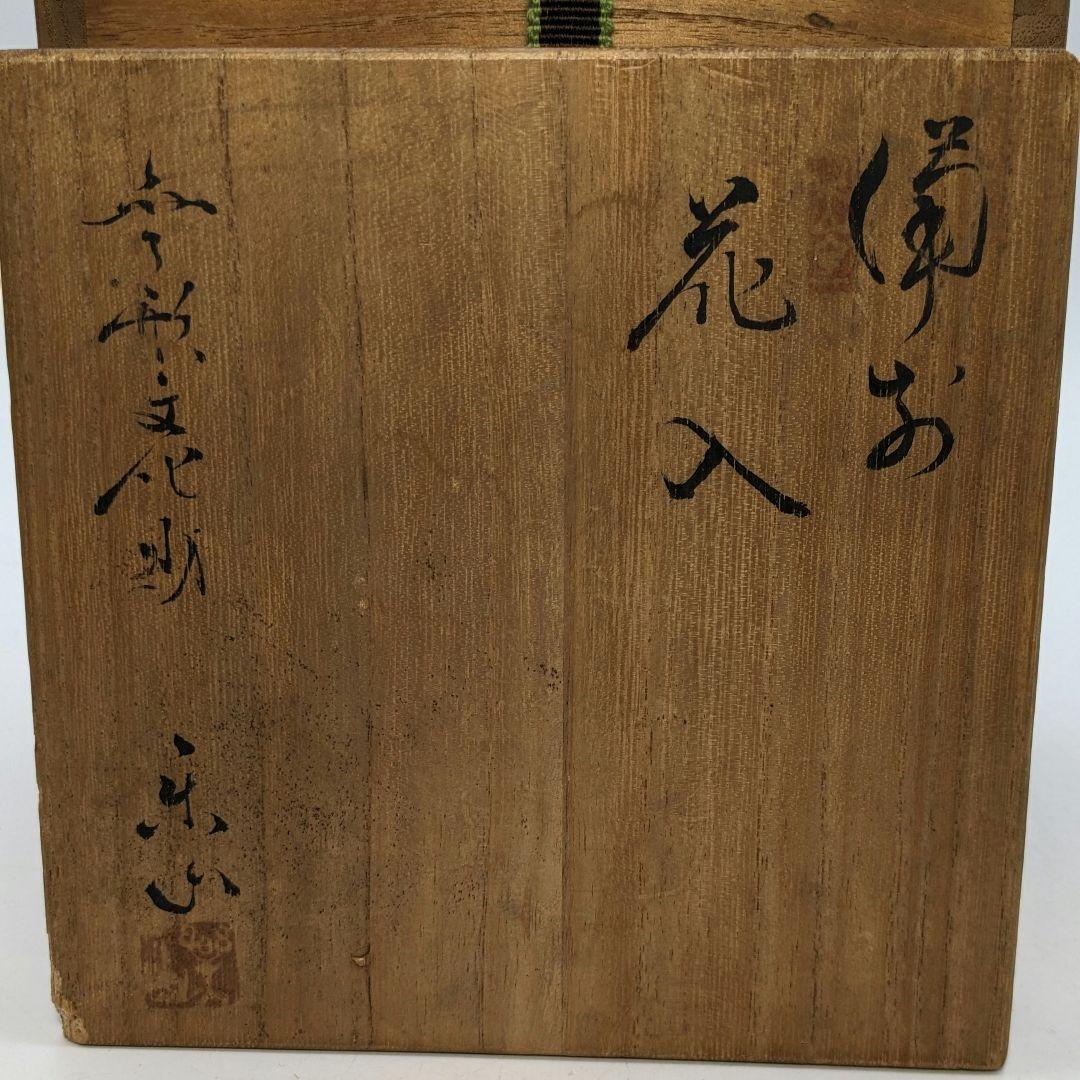 備前
花入
無形文化財
楽山